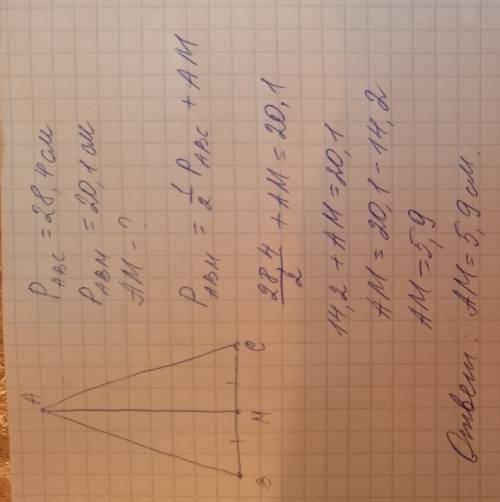 A
B
M
C
P_ABC = 28,4 см
P_ABM = 20,1 см
AM - ?
P_ABM = 1/2 P_ABC + AM
28,4/2 + AM = 20,1
14,2 + AM = 20,1
AM = 20,1 - 14,2
AM = 5,9
Ответ: AM = 5,9 см.